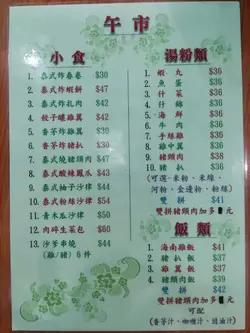 午市
小食
1. 泰式炸春卷 $30
2. 泰式炸蝦餅 $47
3. 泰式炸扎肉 $42
4. 餃子鑲雞翼 $42
5. 香茅炸雞翼 $42
6. 香茅炸豬扒 $42
7. 泰式燒豬頸肉 $42
8. 泰式酸辣鳳爪 $42
9. 泰式柚子沙律 $42
10. 泰式粉絲沙律 $42
11. 青木瓜沙律 $42
12. 向啤生菜包 $42
13. 沙爹串燒 $42
(雞/豬) 6 件
湯粉類
1. 蝦丸 $36
2. 魚蛋 $36
3. 什菜 $36
4. 什錦 $36
5. 海鮮 $36
6. 牛肉 $36
7. 手絲雞 $36
8. 雞中翼 $36
9. 豬頸肉 $38
10. 豬扒 $36
(可選-米粉、米線、
河粉、金邊粉、粉絲)
雙拼 $41
雙拼豬頸肉加多 元
飯類
1. 海南雞飯 $41
2. 豬扒飯 $39
3. 雞翼飯 $39
4. 豬頸肉飯 $39
雙拼 $42
雙拼豬頸肉加多 元
可配
(香茅汁、咖喱汁、豉油汁)